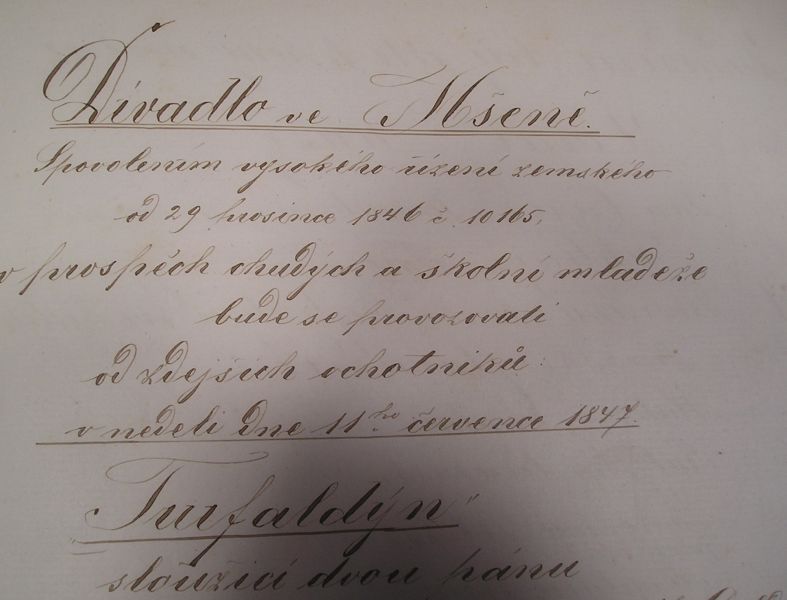 Divadlo ve Mšeně.
Spovolením vysokého řízení zemského
od 29 prosince 1846 č. 10165,
v prospěch chudých a školní mladeže
bude se provozovati
od zdejších ochotniků:
v nedeli dne 11ho července 1847.
"Turfaldýn"
sloužicí dvou pánu